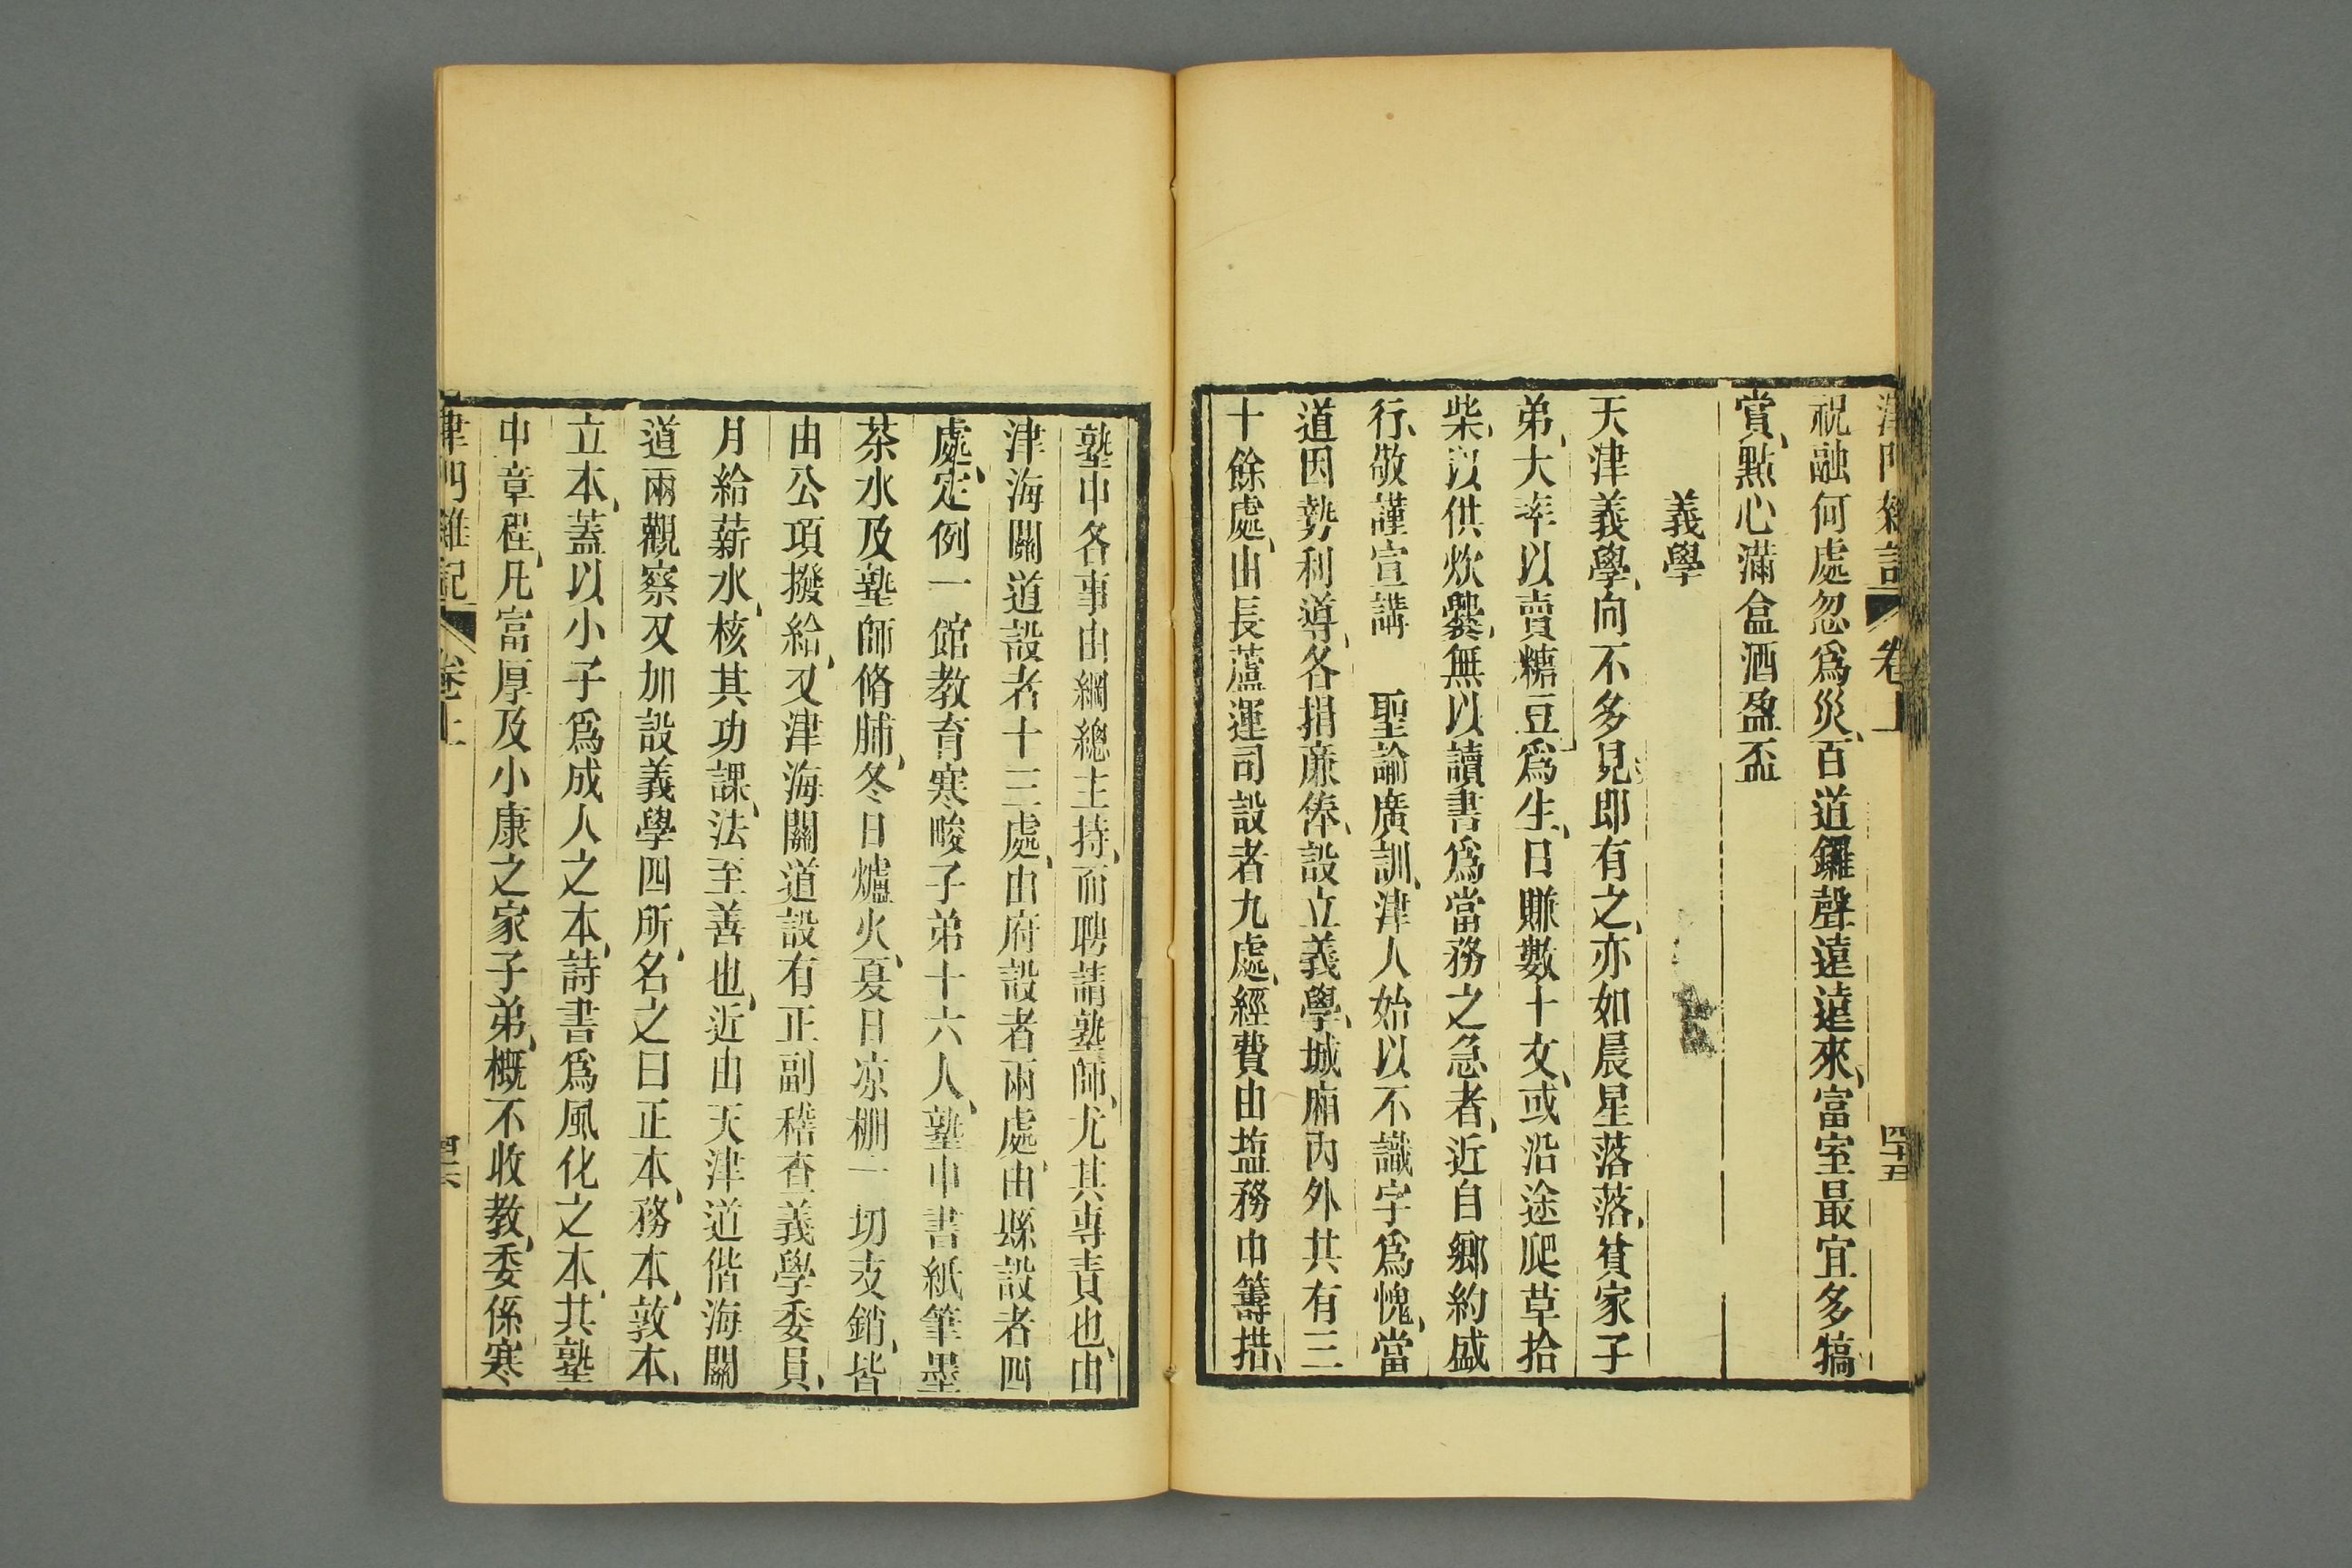 津門雜記 卷上 四十五
祝融何處忽爲災、百道鑼聲遠遠來、富室最宜多犒
賞、點心滿盒酒盈盃
義學
天津義學、向不多見、即有之、亦如晨星落落、貧家子
弟、大率以賣糖豆爲生、日賺數十文、或沿途爬草拾
柴、以供炊爨、無以讀書爲當務之急者、近自鄉約盛
行、敬謹宣講 聖諭廣訓、津人始以不識字爲愧、當
道因勢利導、各捐廉俸、設立義學、城廂內外共有三
十餘處、由長蘆運司設者九處、經費由塩務中籌措、
塾中各事由綱總主持、而聘請塾師、尤其專責也、由
津海關道設者十三處、由府設者兩處、由縣設者四
處、定例一館教育寒畯子弟十六人、塾中書紙筆墨
茶水及塾師脩脯、冬日爐火、夏日凉棚一切支銷、皆
由公項撥給、又津海關道設有正副稽查義學委員、
月給薪水、核其功課、法至善也、近由天津道偕海關
道兩觀察又加設義學四所、名之曰正本、務本、敦本、
立本、蓋以小子爲成人之本、詩書爲風化之本、其塾
中章程、凡富厚及小康之家子弟、概不收教、委係寒
津門雜記 卷上 四十六